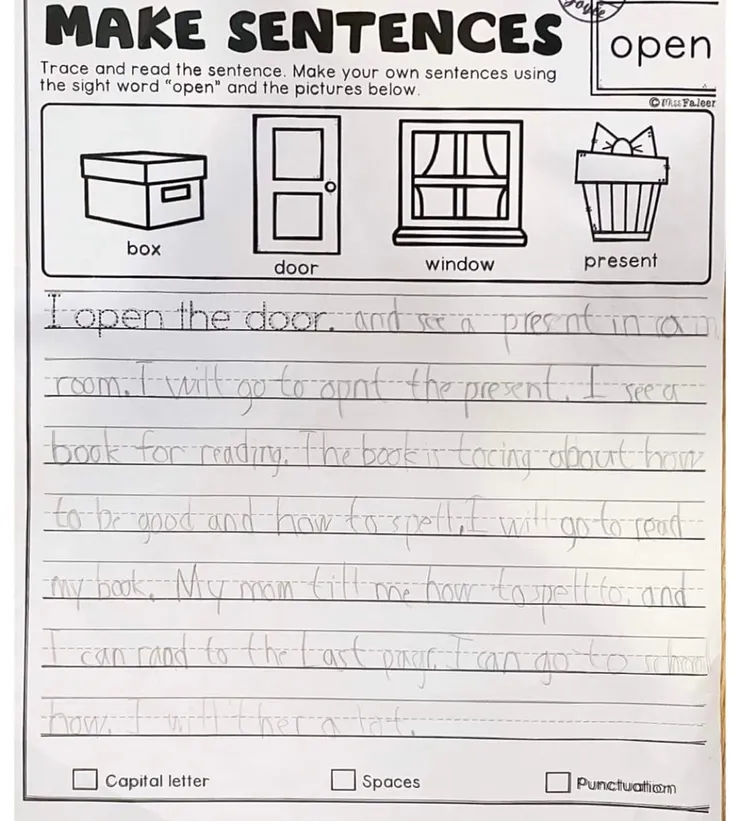 MAKE SENTENCES
open
Trace and read the sentence. Make your own sentences using
the sight word "open" and the pictures below.
©Miss Faleer
box
door
window
present
I open the door. and see a present in a
room. I will go to opnt the present. I see a
book for reading. The book is tacing about how
to be good and how to spell. I will go to read
my book. My mom till me how to spell to. and
I can rand to the Last page. I can go to school
how. I will ther a lot.
Capital letter
Spaces
Punctuation